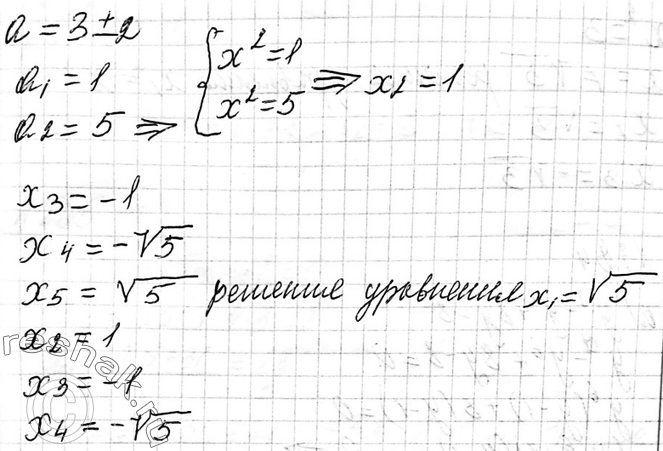 a = 3 ± 2
a₁ = 1
a₂ = 5 ⇒ { x² = 1 x² = 5 ⇒ x₂ = 1
x₃ = -1
x₄ = -√5
x₅ = √5 решение уравнения x₁ = √5
x₂ = 1
x₃ = -1
x₄ = -√5
reshak.ru